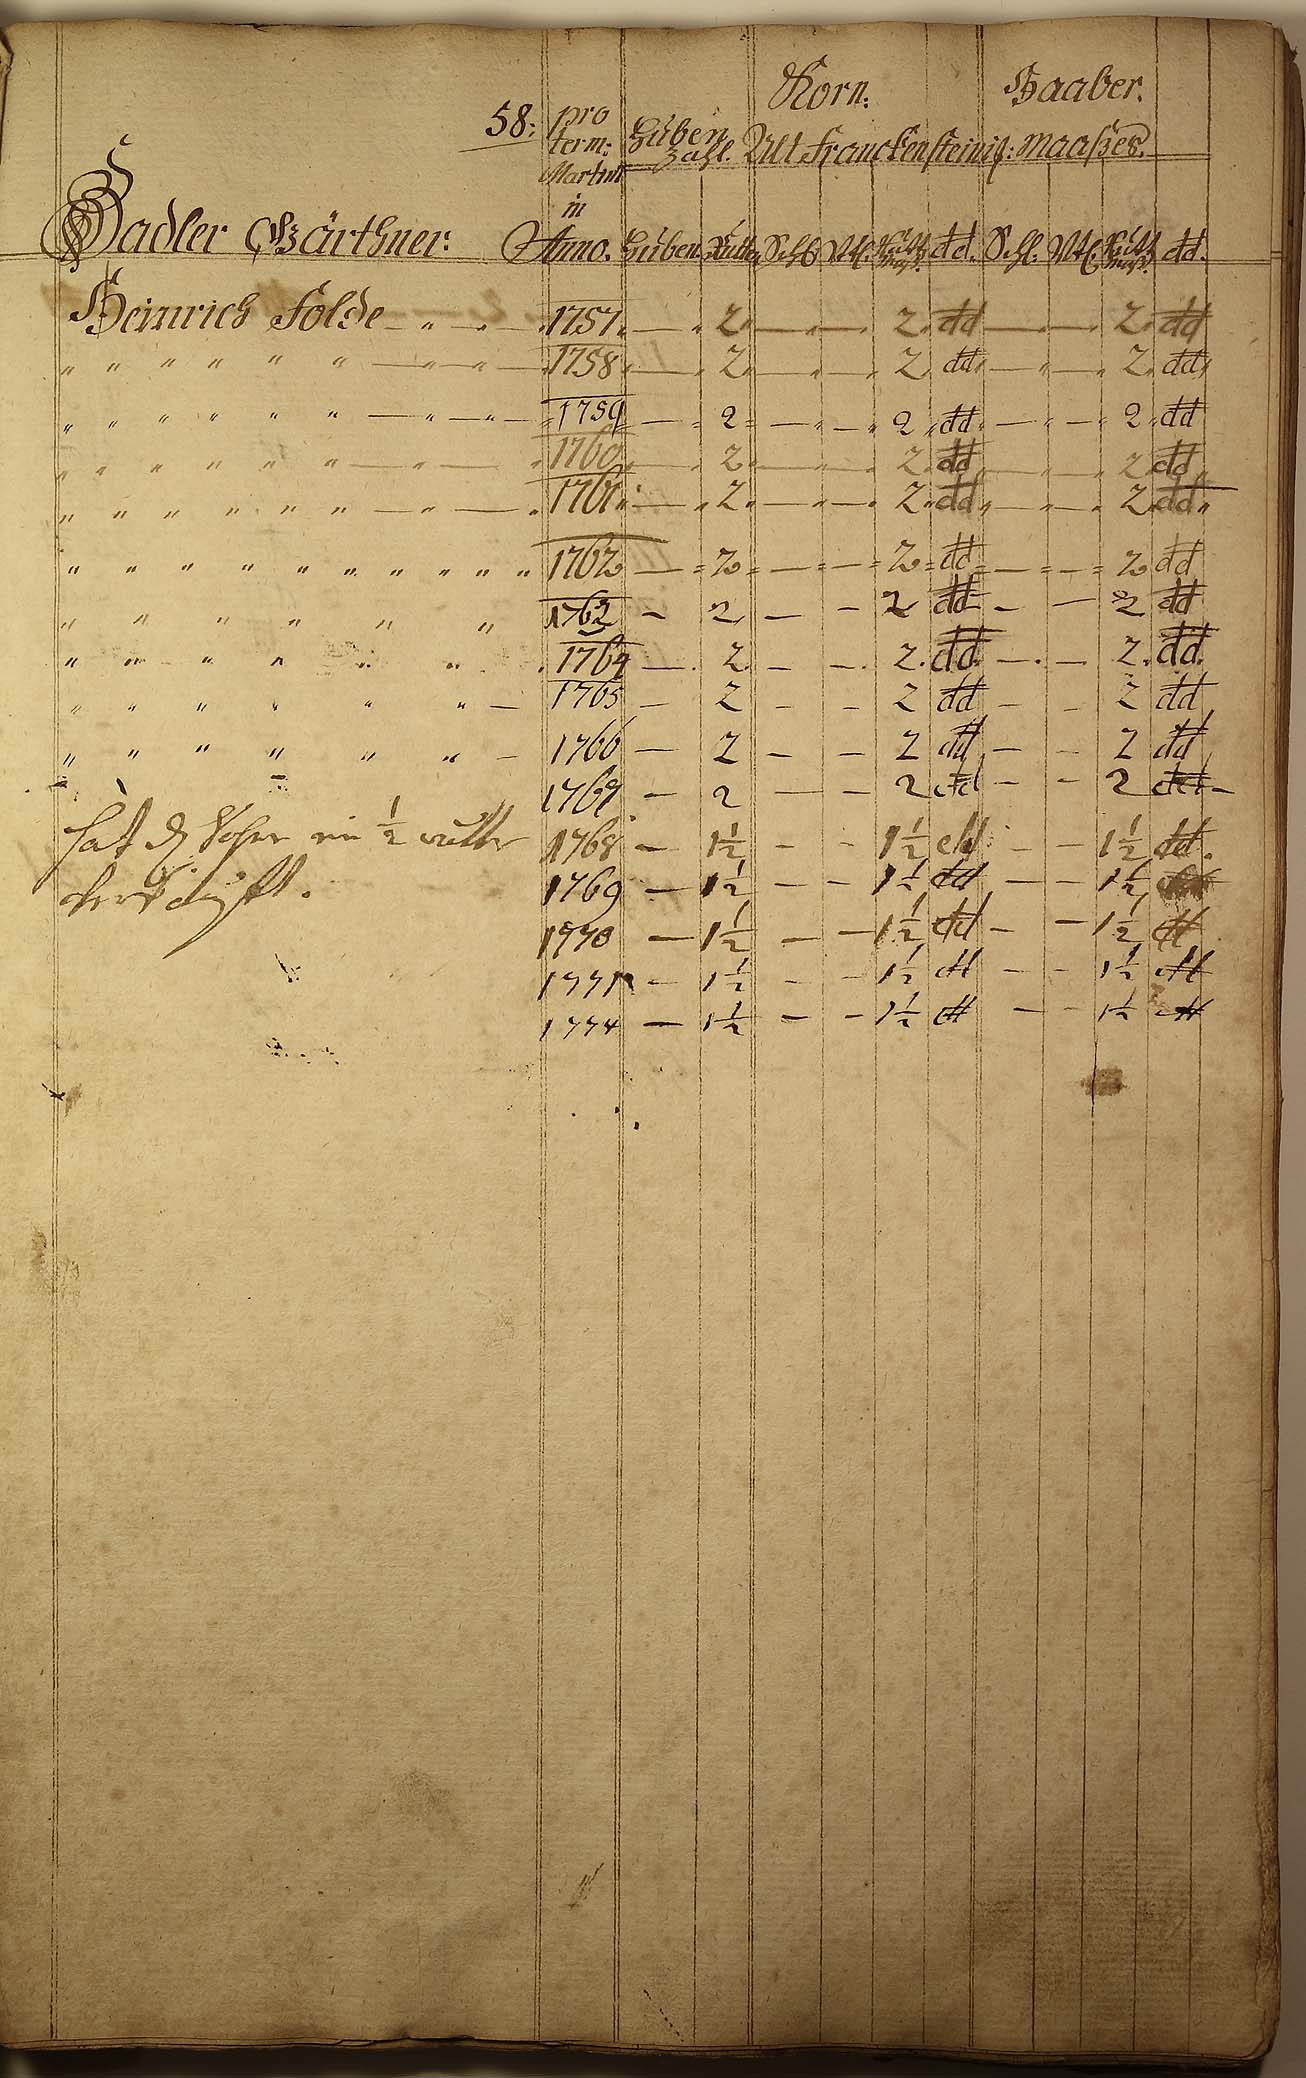 Korn. Haaber.
58. pro
term: Huben
zahl. Alt Franckensteinis: Maaßes.
Martini
in
Sadler Gärthner: Anno. Huben. Rutten Schl. Vtl. dd. Schl. Vtl. dd.
Heinrich Folde — " — " 1757 — " 2 — " — 2 dd — " — 2 dd
" " " " " " — " — " 1758 — " 2 — " — 2 dd — " — 2 dd
" " " " " " — " — " 1759 — " 2 — " — 2 dd — " — 2 dd
" " " " " " — " — 1760 — " 2 — " — 2 dd — " — 2 dd
" " " " " " — " — 1761 — " 2 — " — 2 dd — " — 2 dd
" " " " " " " " " " " 1762 — 2 — — 2 dd — — 2 dd
" " " " " " 1763 — 2 — — 2 dd — — 2 dd
" " " " " " 1764 — 2 — — 2 dd — — 2 dd
" " " " " " — 1765 — 2 — — 2 dd — — 2 dd
" " " " " " — 1766 — 2 — — 2 dd — — 2 dd
1767 — 2 — — 2 dd — — 2 dd
hat ein ½ rutte 1768 — 1½ — — 1½ dd — — 1½ dd
verkaufft. 1769 — 1½ — — 1½ dd — — 1½
1770 — 1½ — — 1½ dd — — 1½ dd
1771 — 1½ — — 1½ dd — — 1½ dd
1774 — 1½ — — 1½ dd — — 1½ dd